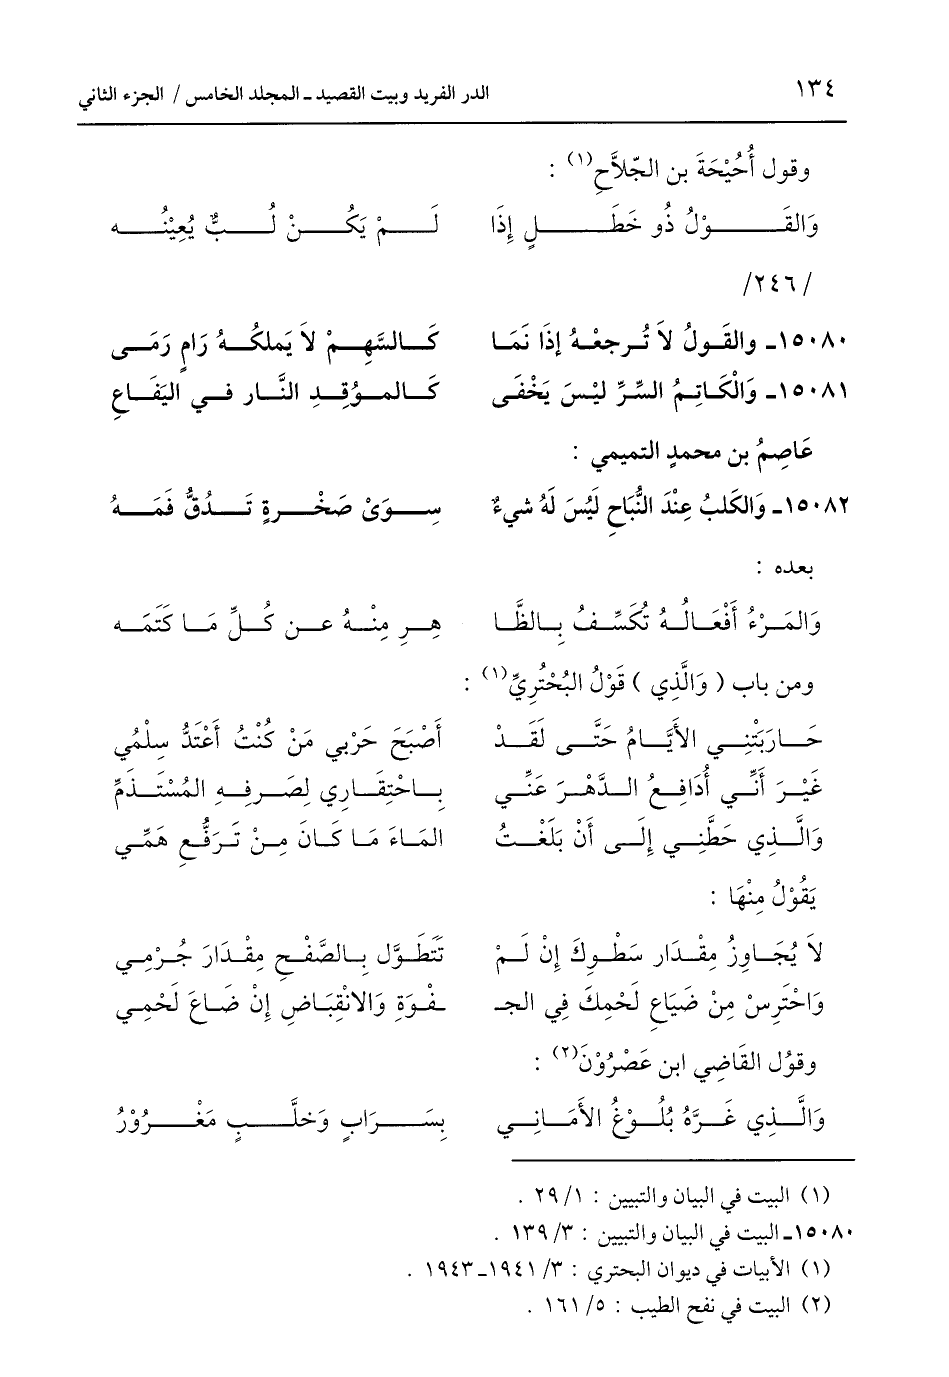 ١٣٤ الدر الفريد وبيت القصيد ـ المجلد الخامس / الجزء الثاني
وقول أُحَيْحَةَ بن الجّلاَّحِ(١) :
وَالقَوْلُ ذُو خَطَلٍ إِذَا لَمْ يَكُنْ لُبٌّ يُعِيْنُه
/٢٤٦/
١٥٠٨٠ـ والقَولُ لاَ تُرجعْهُ إذَا نَمَا كَالسَّهِمْ لاَ يَملكُهُ رَامٍ رَمَى
١٥٠٨١ـ وَالْكَاتِمُ السِّرِّ لَيْسَ يَخْفَى كَالموُقِدِ النَّار في اليَفَاعِ
عَاصِمُ بن محمدٍ التميمي :
١٥٠٨٢ـ وَالكَلبُ عِنْدَ النُّبَاحِ لَيُسَ لَهُ شيءٌ سِوَىْ صَخْرةٍ تَدُقُّ فَمَهُ
بعده :
وَالمَرْءُ أَفْعَالُهُ تُكَشِّفُ بِالظَّا هِرِ مِنْهُ عن كُلِّ مَا كَتَمَه
ومن باب ( وَالَّذِي ) قَوْلُ البُحْتُرِيِّ(١) :
حَارَبَتْنِي الأَيَّامُ حَتَّى لَقَدْ أَصْبَحَ حَرْبي مَنْ كُنْتُ أَعْتَدُّ سِلْمُي
غَيْرَ أَنِّي أُدَافِعُ الدَّهْرَ عَنِّي بِاحْتِقَارِي لِصَرفِهِ المُسْتَذَمِّ
وَالَّذِي حَطَّنِي إِلَى أَنْ بَلَغْتُ المَاءَ مَا كَانَ مِنْ تَرَفُّعِ هَمِّي
يَقُوْلُ مِنْهَا :
لاَ يُجَاوِزُ مِقْدَار سَطْوِكَ إِنْ لَمْ تَتَطَوَّل بِالصَّفْحِ مِقْدَارَ جُرْمِي
وَاحْتَرِسْ مِنْ ضَيَاعِ لَحْمِكَ فِي الجـ ـفْوَةِ وَالانْقِبَاضِ إِنْ ضَاعَ لَحْمِي
وقوُل القَاضِي ابن عَصْرُوْنَ(٢) :
وَالَّذِي غَرَّهُ بُلُوْغُ الأَمَانِي بِسَرَابٍ وَخلَّبٍ مَغْرُوْرُ
(١) البيت في البيان والتبيين : ٢٩/١ .
١٥٠٨٠ـ البيت في البيان والتبيين : ١٣٩/٣ .
(١) الأبيات في ديوان البحتري : ٣/ ١٩٤١ـ١٩٤٣ .
(٢) البيت في نفح الطيب : ٥/ ١٦١ .